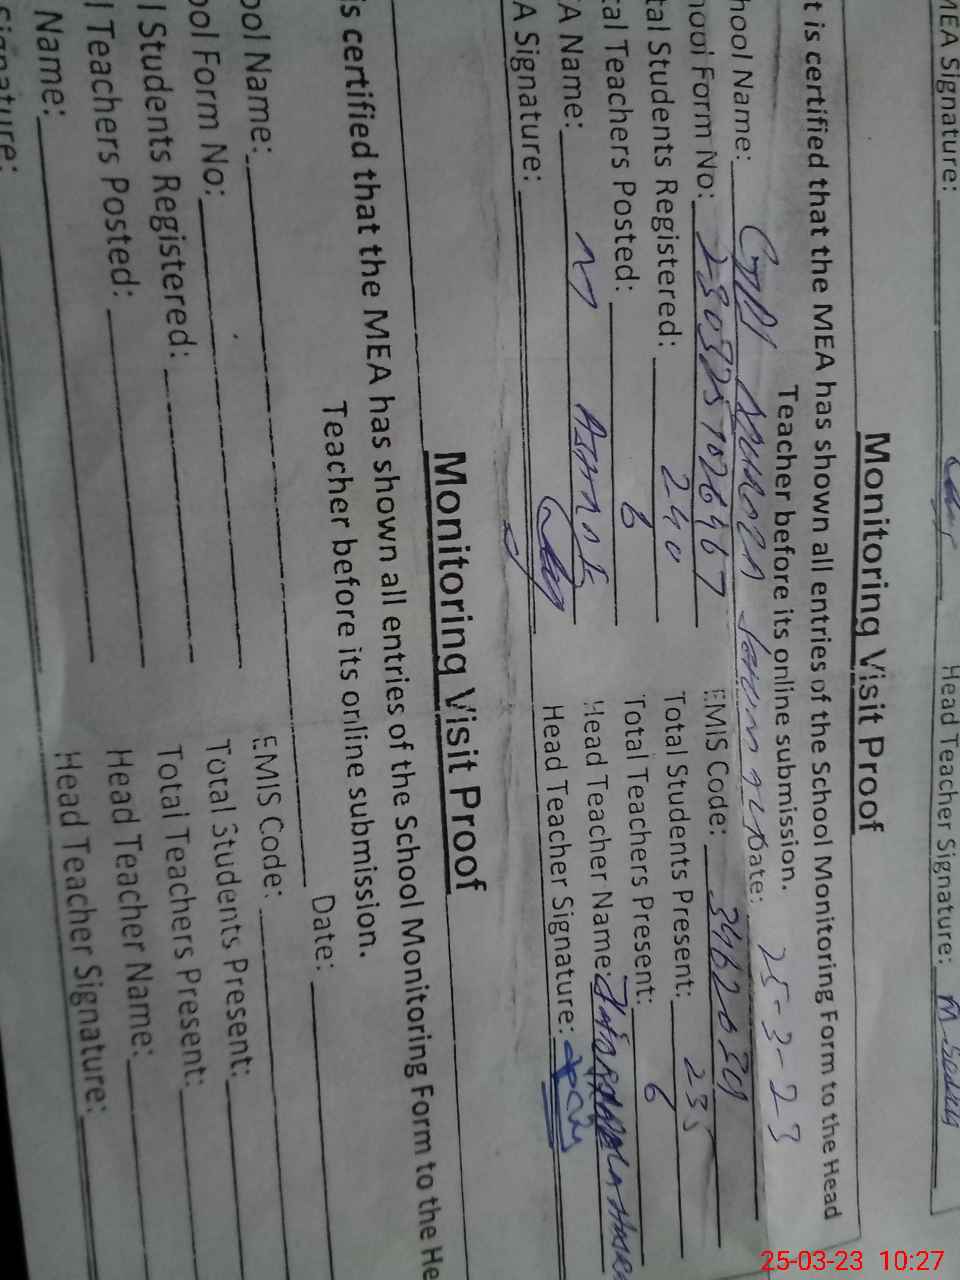 MEA Signature:
Head Teacher Signature: M. Sadiq
Monitoring Visit Proof
t is certified that the MEA has shown all entries of the School Monitoring Form to the Head
Teacher before its online submission.
hool Name: Date: 25-3-23
hool Form No: EMIS Code:
tal Students Registered: 240 Total Students Present: 235
tal Teachers Posted: 6 Total Teachers Present: 6
A Name: M Head Teacher Name:
A Signature: Head Teacher Signature:
Monitoring Visit Proof
is certified that the MEA has shown all entries of the School Monitoring Form to the He
Teacher before its online submission.
ool Name: Date:
ool Form No: EMIS Code:
l Students Registered: Total Students Present:
l Teachers Posted: Total Teachers Present:
Name: Head Teacher Name:
Signature: Head Teacher Signature:
25-03-23 10:27